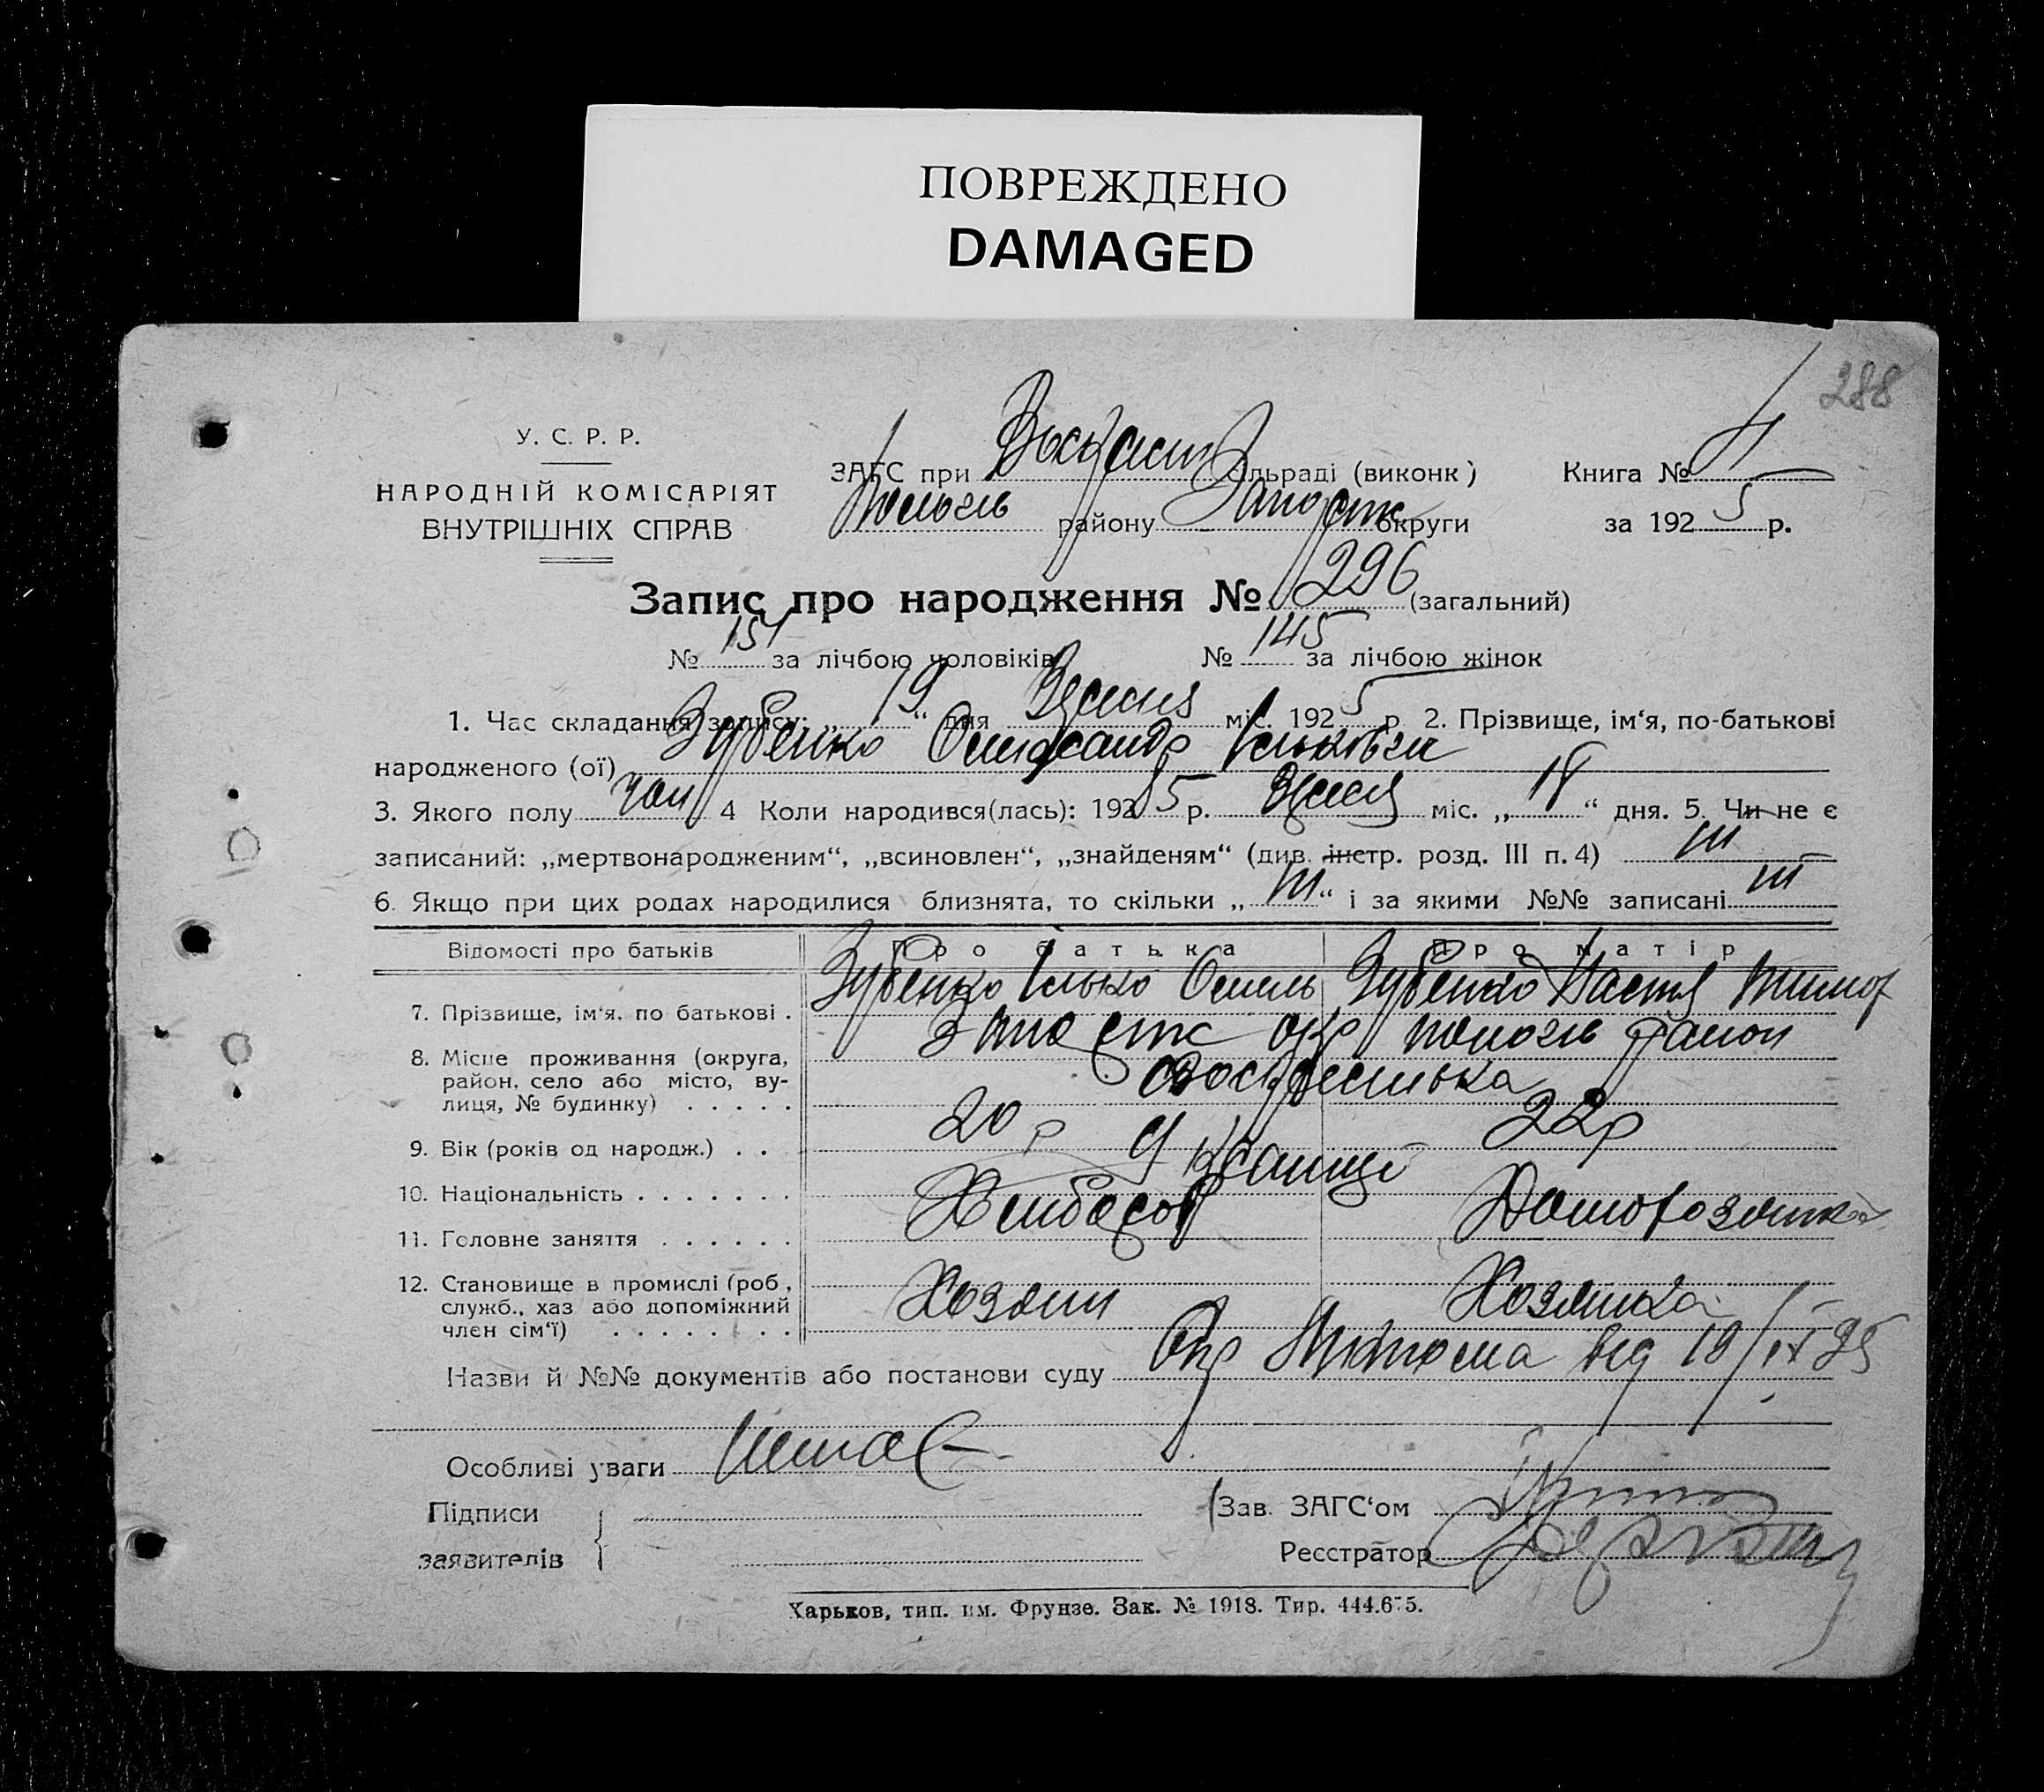 ПОВРЕЖДЕНО
DAMAGED
288
У. С. Р. Р.
НАРОДНІЙ КОМІСАРІЯТ
ВНУТРІШНІХ СПРАВ
ЗАГС при сільраді (виконк)
району округи
Книга №
за 1925 р.
Запис про народження № 296 (загальний)
№ 151 за лічбою чоловіків № 145 за лічбою жінок
1. Час складання запису: „ 19 “ дня міс. 1925 р 2. Прізвище, ім‘я, по-батькові
народженого (ої) Зубенко Олександр
3. Якого полу чол 4 Коли народився(лась): 1925 р. міс. „ 18 “ дня. 5. Чи не є
записаний: „мертвонародженим“, „всиновлен“, „знайденям“ (див. інстр. розд. III п. 4)
6. Якщо при цих родах народилися близнята, то скільки „ “ і за якими №№ записані
Відомості про батьків Про батька Про матір
7. Прізвище, ім‘я, по батькові . Зубенко Ілько Омель Зубенко Настя Тимоф
8. Місце проживання (округа, район, село або місто, вулиця, № будинку) . . . . . Запоріж окр пологів район
Воскресенька
9. Вік (років од народж.) . . 20 р 22 р
10. Національність . . . . . . . Українці
11. Головне заняття . . . . . . Хлібороб Домохозяйка
12. Становище в промислі (роб., служб., хаз або допоміжний член сім‘ї) . . . . . . . . Хозяин Хозяйка
Назви й №№ документів або постанови суду від 19/IX 25
Особливі уваги
Підписи
заявителів
Зав. ЗАГС‘ом
Реєстратор
Харьков, тип. им. Фрунзе. Зак. № 1918. Тир. 444.675.